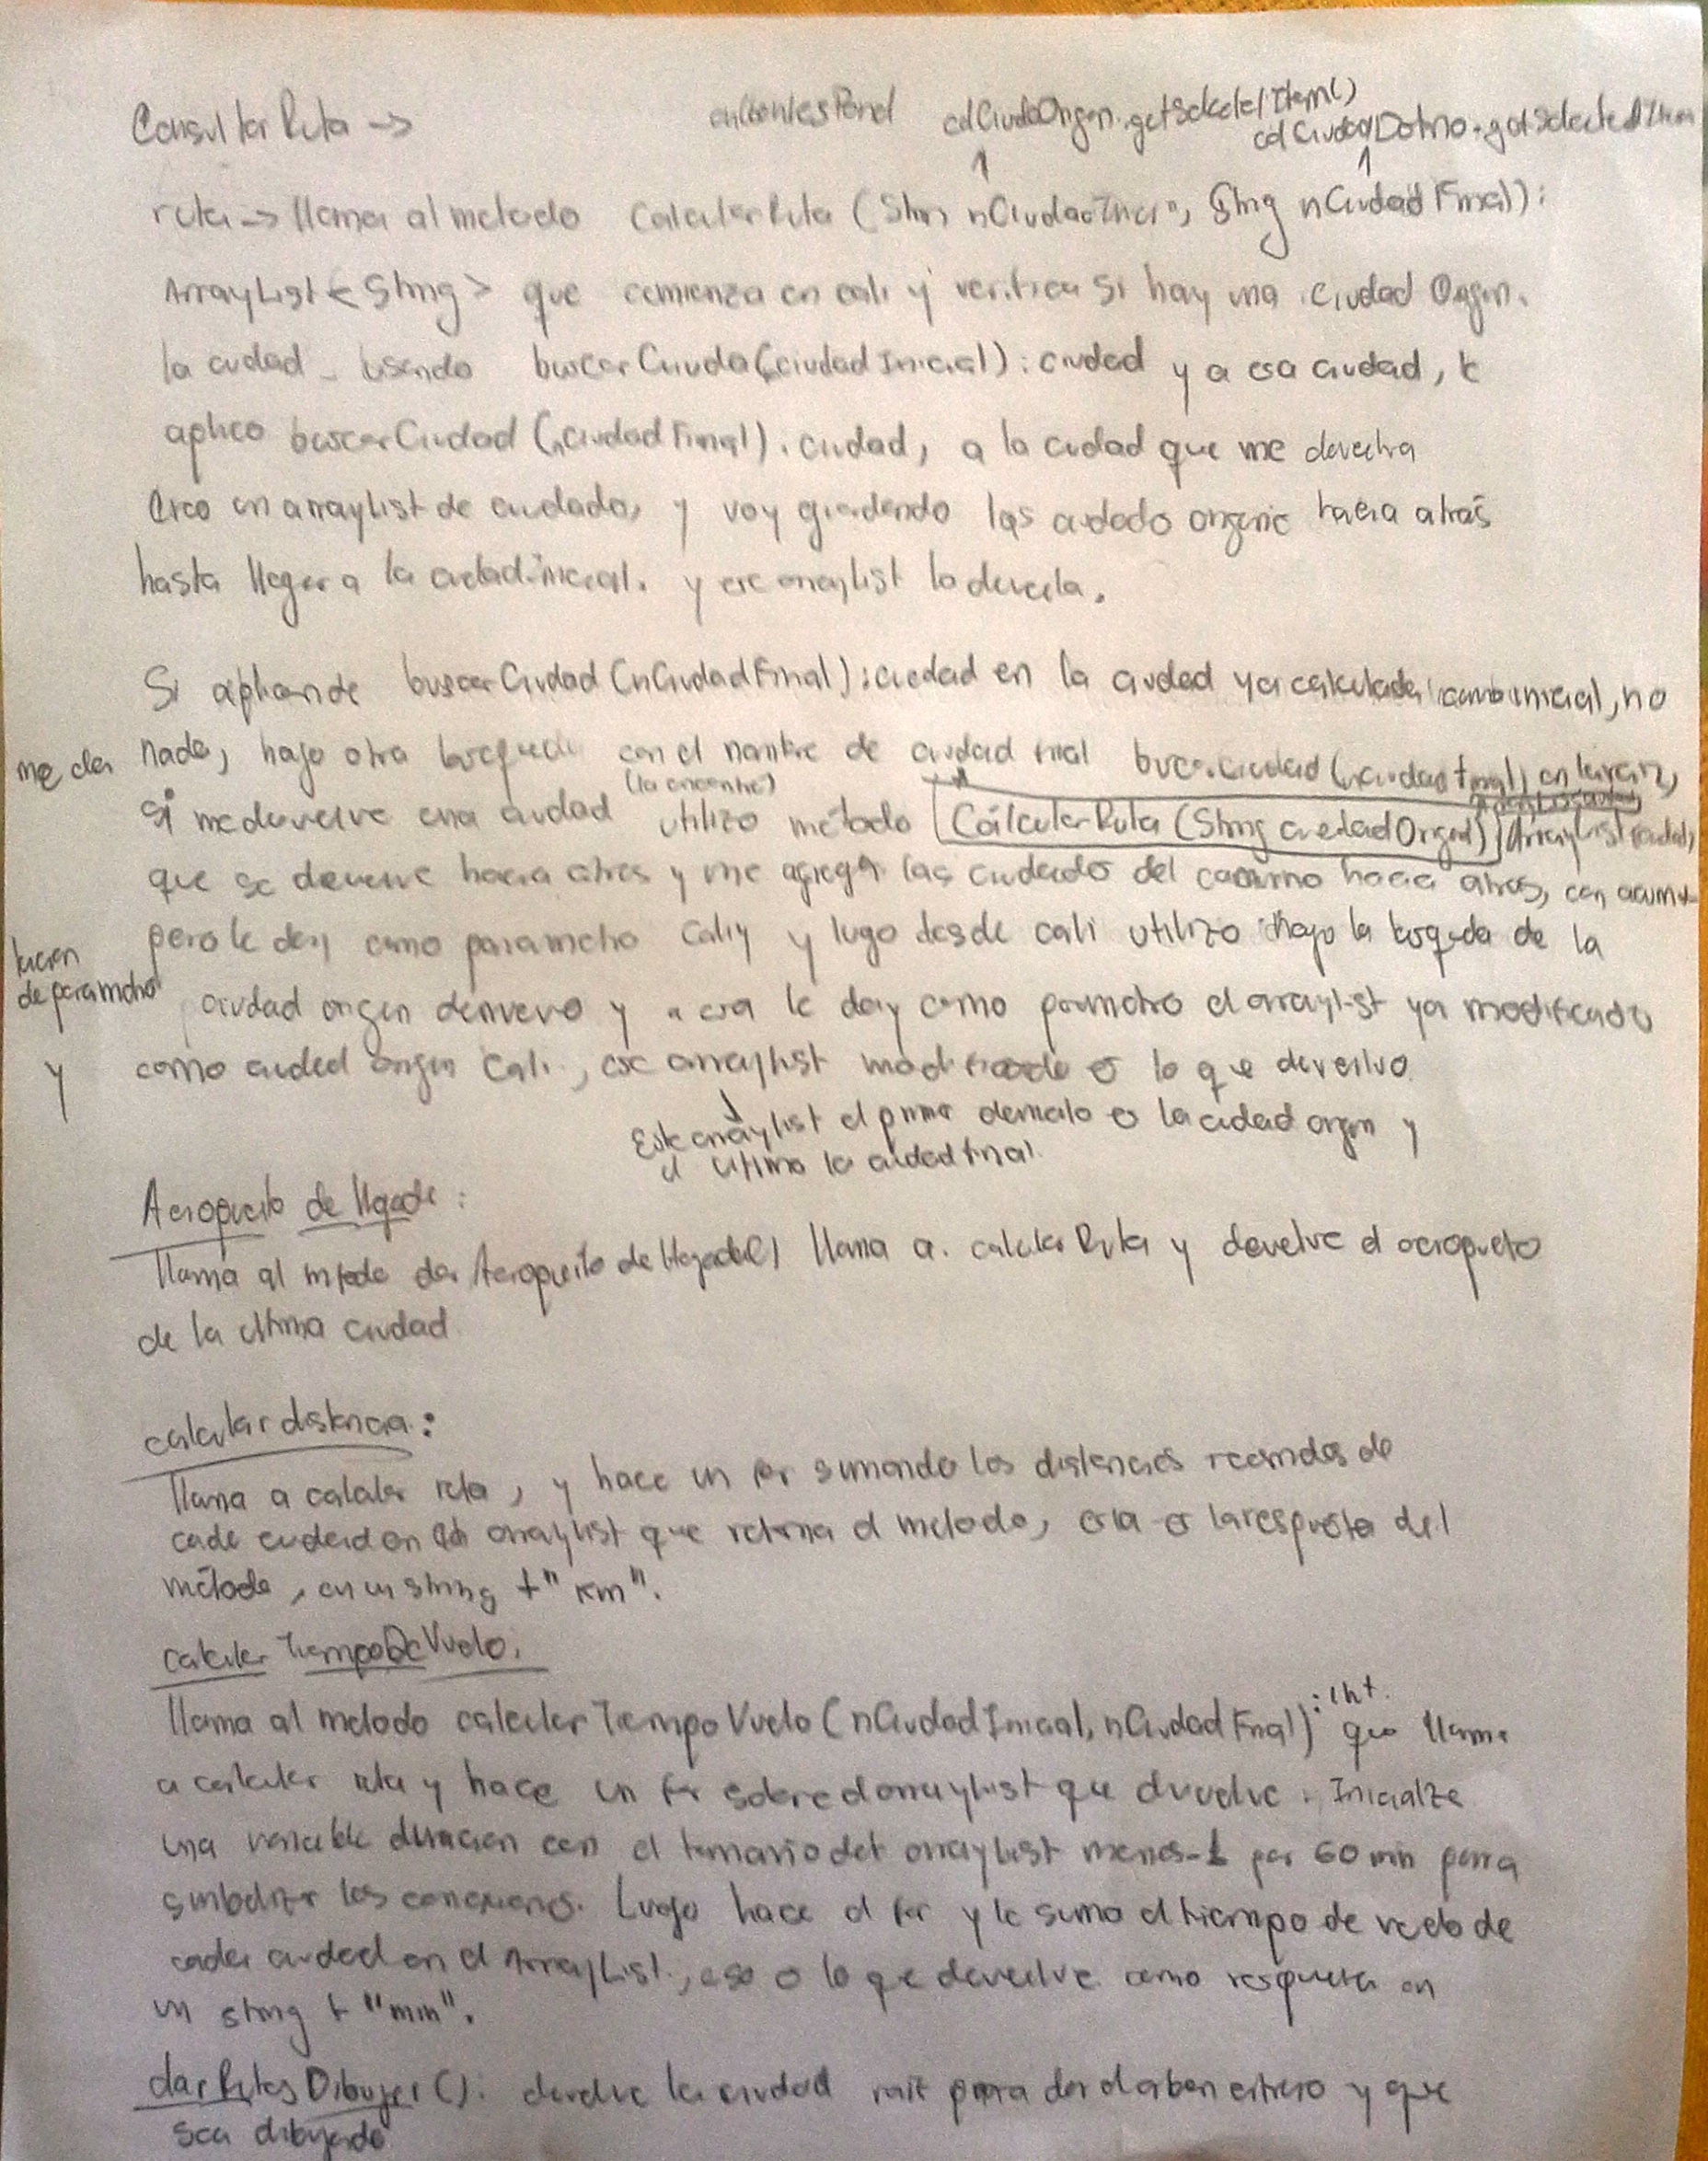 Consultar Ruta →
cdCiudadOrigen.getSelectedItem()
cdCiudadDestino.getSelectedItem
ruta → llama al metodo calcularRuta (String nCiudadInicial, String nCiudadFinal):
ArrayList<String> que comienza en cali y verifica si hay una ciudad Origen.
la ciudad usando buscarCiudad(ciudadInicial): ciudad y a esa ciudad, le
aplico buscarCiudad (nciudadFinal). ciudad, a la ciudad que me devuelva
Creo un arraylist de ciudades, y voy guardando las ciudades origenes hacia atrás
hasta llegar a la ciudad inicial. y ese arraylist lo devuelvo.
Si aplicando buscarCiudad (nCiudadFinal): ciudad en la ciudad ya calculada como inicial, no
me da nada, hago otra busqueda con el nombre de ciudad final buscarciudad (nciudadFinal) en la raiz,
(la encontre)
si me devuelve una ciudad utilizo método CalcularRuta (String ciudadOrigen) ArrayList
que se devuelve hacia atras y me agrega las ciudades del camino hacia atras, con
pero le doy como parametro Cali y y luego desde cali utilizo hago la busqueda de la
de parametro
ciudad origen de nuevo y a esa le doy como parametro el arraylist ya modificado
y como ciudad origen Cali, ese arraylist modificado es lo que devuelvo.
↓
Este arraylist el primer elemento es la ciudad origen y
el ultimo la ciudad final.
Aeropuerto de llegada:
llama al metodo dar Aeropuerto de llegada() llama a. calcular Ruta y devuelve el aeropuerto
de la ultima ciudad
calcular distancia:
llama a calcular ruta, y hace un for sumando las distancias recorridas de
cada ciudad en el arraylist que retorna el metodo, esa es la respuesta del
método, en un string + "km".
calcular TiempoDeVuelo.
llama al metodo calcularTiempoVuelo (nCiudadInicial, nCiudadFinal): int. que llama
a calcular ruta y hace un for sobre el arraylist que devuelve. Inicialize
una variable duracion con el tamanio del arraylist menos-1 por 60 min para
simbolizar las conexiones. Luego hace el for y le suma el tiempo de vuelo de
cada ciudad en el ArrayList, eso es lo que devuelve como respuesta en
un string + "min".
darRutasDibujar(): devuelve la ciudad raiz para dar el arbol entero y que
sea dibujado